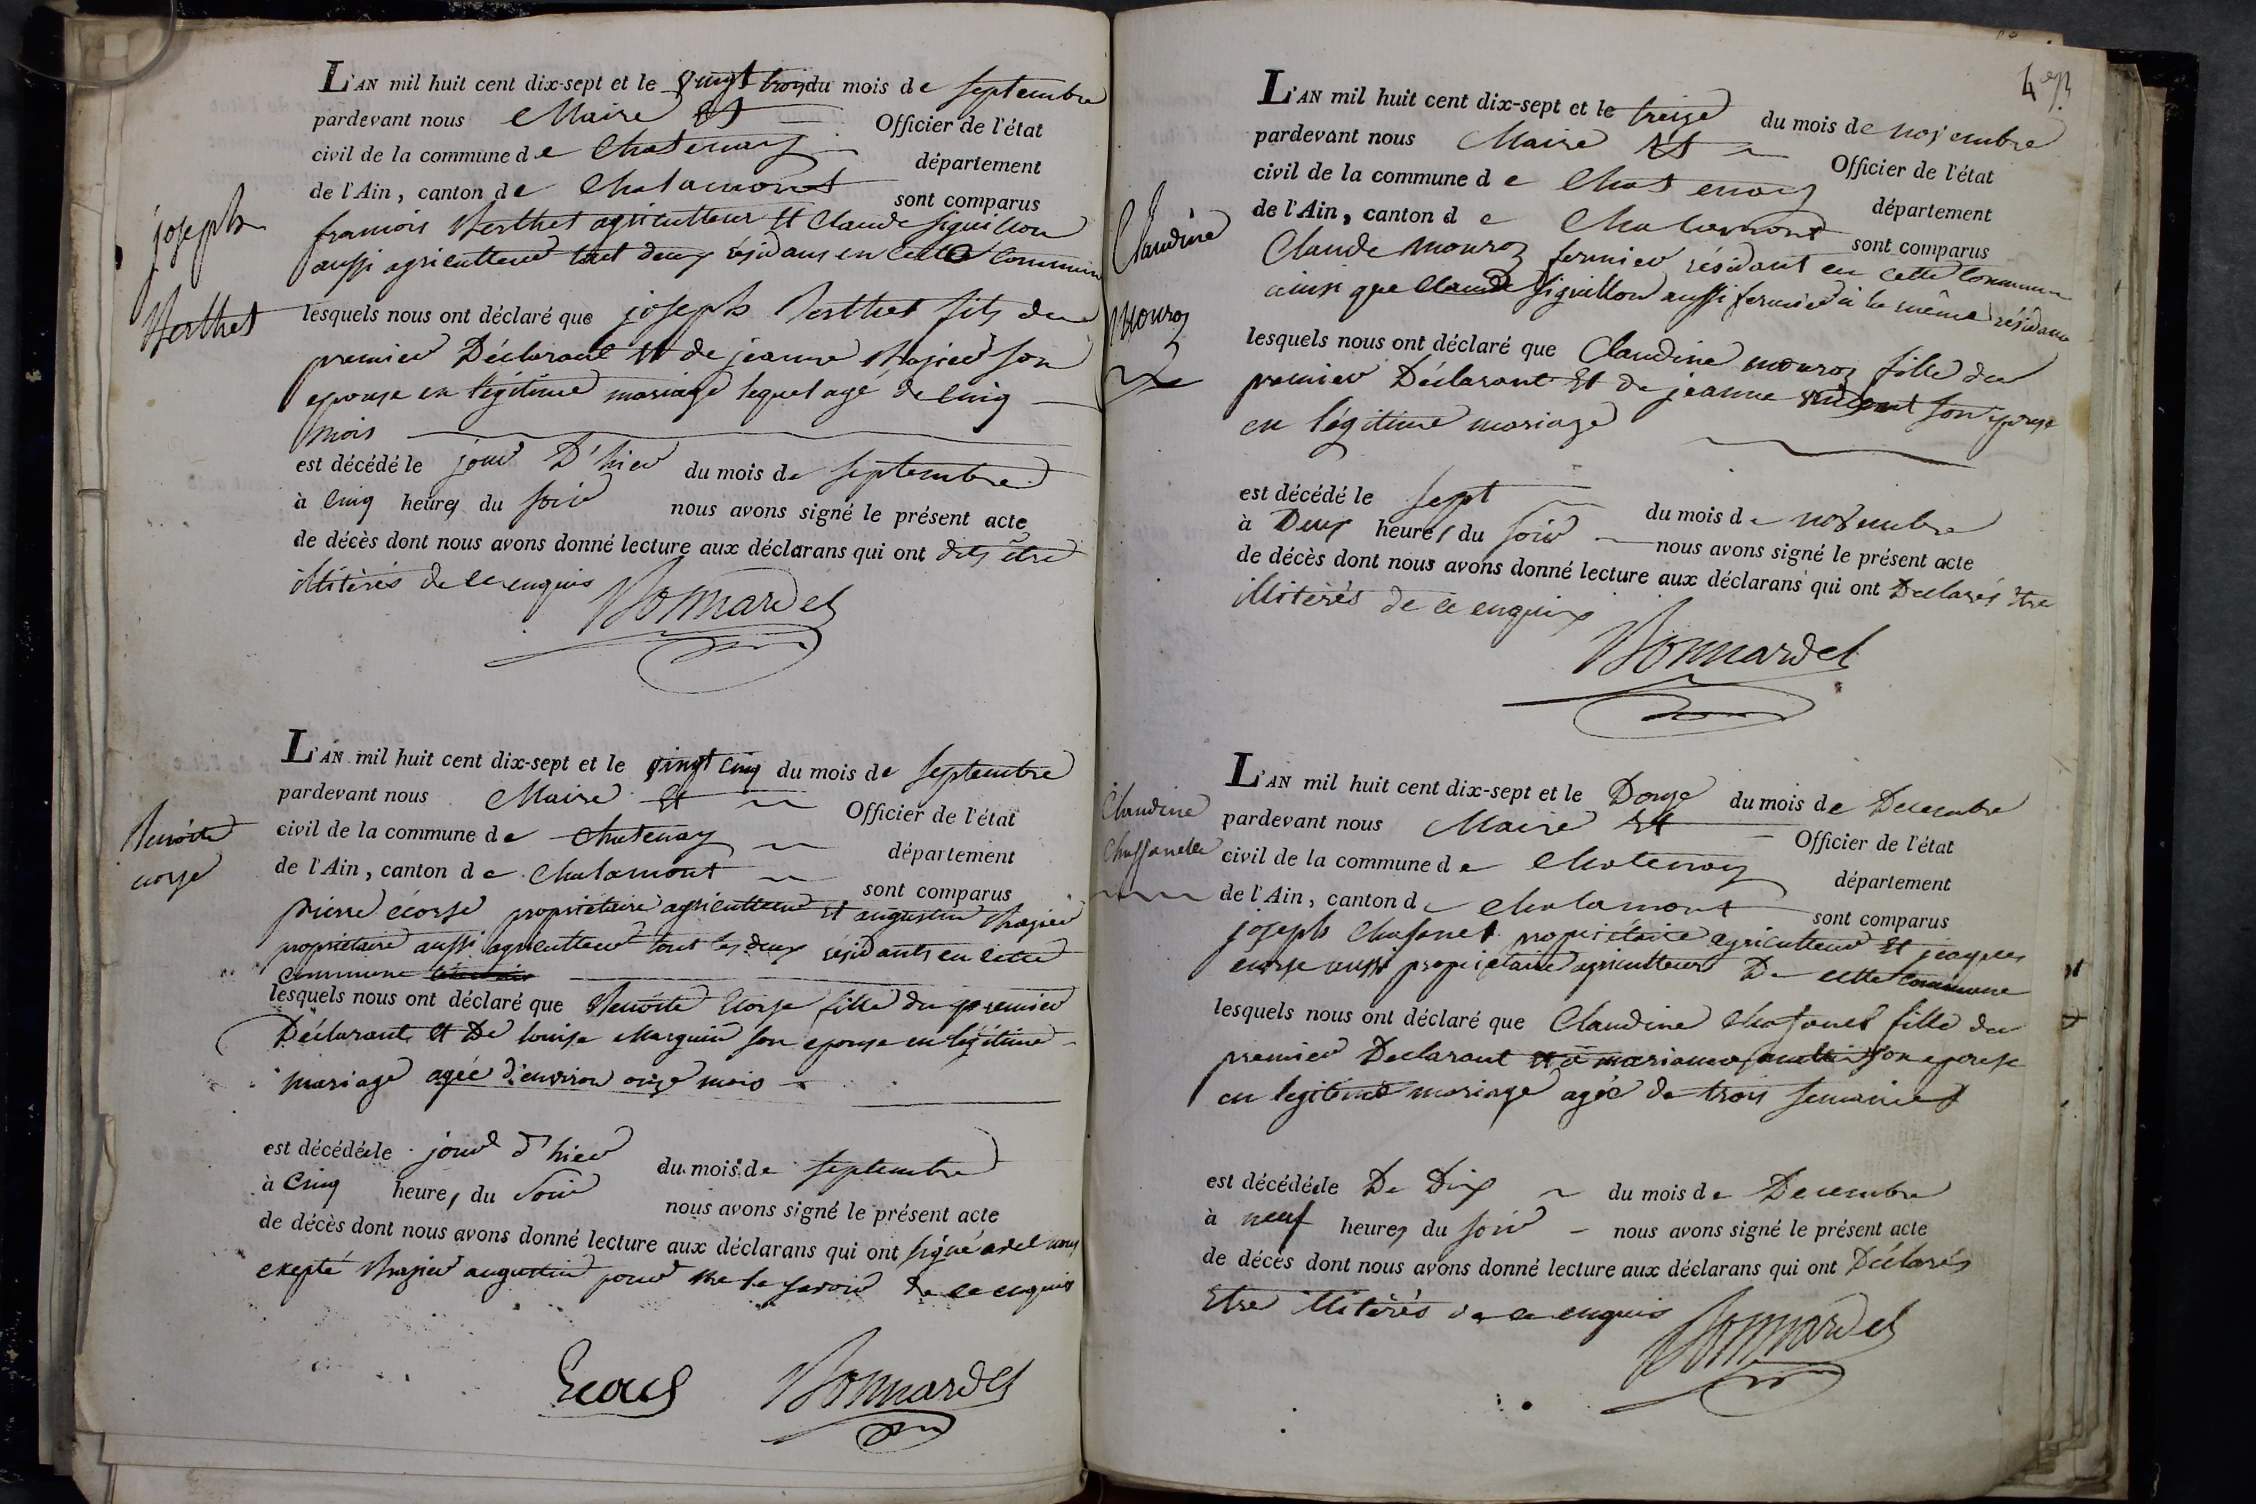 joseph
Berthet
L'AN mil huit cent dix-sept et le vingt trois du mois de septembre
pardevant nous Maire et Officier de l'état
civil de la commune de Chatenay département
de l'Ain, canton de Chalamont sont comparus
francois Berthet agriculteur et Claude siguillon
aussi agriculteur tout deux résidans en cette Commune
lesquels nous ont déclaré que joseph Berthet fils du
premier Déclarant et de jeanne Brazier son
epouse en légitime mariage lequel agé de cinq
mois
est décédé le jour D'hier du mois de septembre
à cinq heures du soir nous avons signé le présent acte
de décès dont nous avons donné lecture aux déclarans qui ont dits être
illitérés de ce enquis
Bonnardel
Benoite
ecorse
L'AN mil huit cent dix-sept et le vingt cinq du mois de septembre
pardevant nous Maire et Officier de l'état
civil de la commune de Chatenay département
de l'Ain, canton de Chalamont sont comparus
pierre écorse propriétaire agriculteur et augustin Brazier
propriétaire aussi agriculteur tout les deux résidants en cette
commune
lesquels nous ont déclaré que Benoite Ecorse fille du premier
Déclarant et De louise Marguin son epouse en légitime
mariage agée d'environ onze mois
est décédée le jour d'hier du mois de septembre
à Cinq heures du soir nous avons signé le présent acte
de décès dont nous avons donné lecture aux déclarans qui ont signé avec nous
exepté Brazier augustin pour ne le savoir de ce enquis
Bonnardel
4
Claudine
Mouroz
L'AN mil huit cent dix-sept et le treize du mois de novembre
pardevant nous Maire et Officier de l'état
civil de la commune de Chatenay département
de l'Ain, canton de Chalamont sont comparus
Claude Mouroz fermier résidant en cette Commune
ainsi que Claude siguillon aussi fermier à la même résidance
lesquels nous ont déclaré que Claudine mouroz fille du
premier Déclarant Et De jeanne son epouse
en légitime mariage
est décédé le sept du mois de novembre
à Deux heures du soir nous avons signé le présent acte
de décès dont nous avons donné lecture aux déclarans qui ont Declarés être
illitérés de ce enquis
Bonnardel
Claudine
Chaffanel
L'AN mil huit cent dix-sept et le Douze du mois de Decembre
pardevant nous Maire et Officier de l'état
civil de la commune de Chatenay département
de l'Ain, canton de Chalamont sont comparus
joseph Chafanel propriétaire agriculteur Et jacques
ecorse aussi propriétaire agriculteur De cette commune
lesquels nous ont déclaré que Claudine Chafanel fille du
premier Declarant et marianne son epouse
en legitime mariage agée de trois semaines
est décédée le De Dix du mois de Decembre
à neuf heures du soir nous avons signé le présent acte
de décès dont nous avons donné lecture aux déclarans qui ont Déclarés
Etre illitérés de ce enquis
Bonnardel